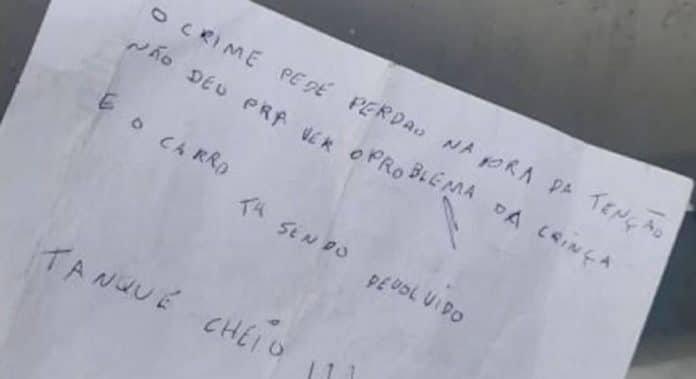 O CRIME PEDE PERDAO NA ORA DA TENÇÃO
NÃO DEU PRA VER O PROBLEMA DA CRINÇA
E O CARRO TA SENDO DEVOLVIDO
TANQUE CHEIO !!!